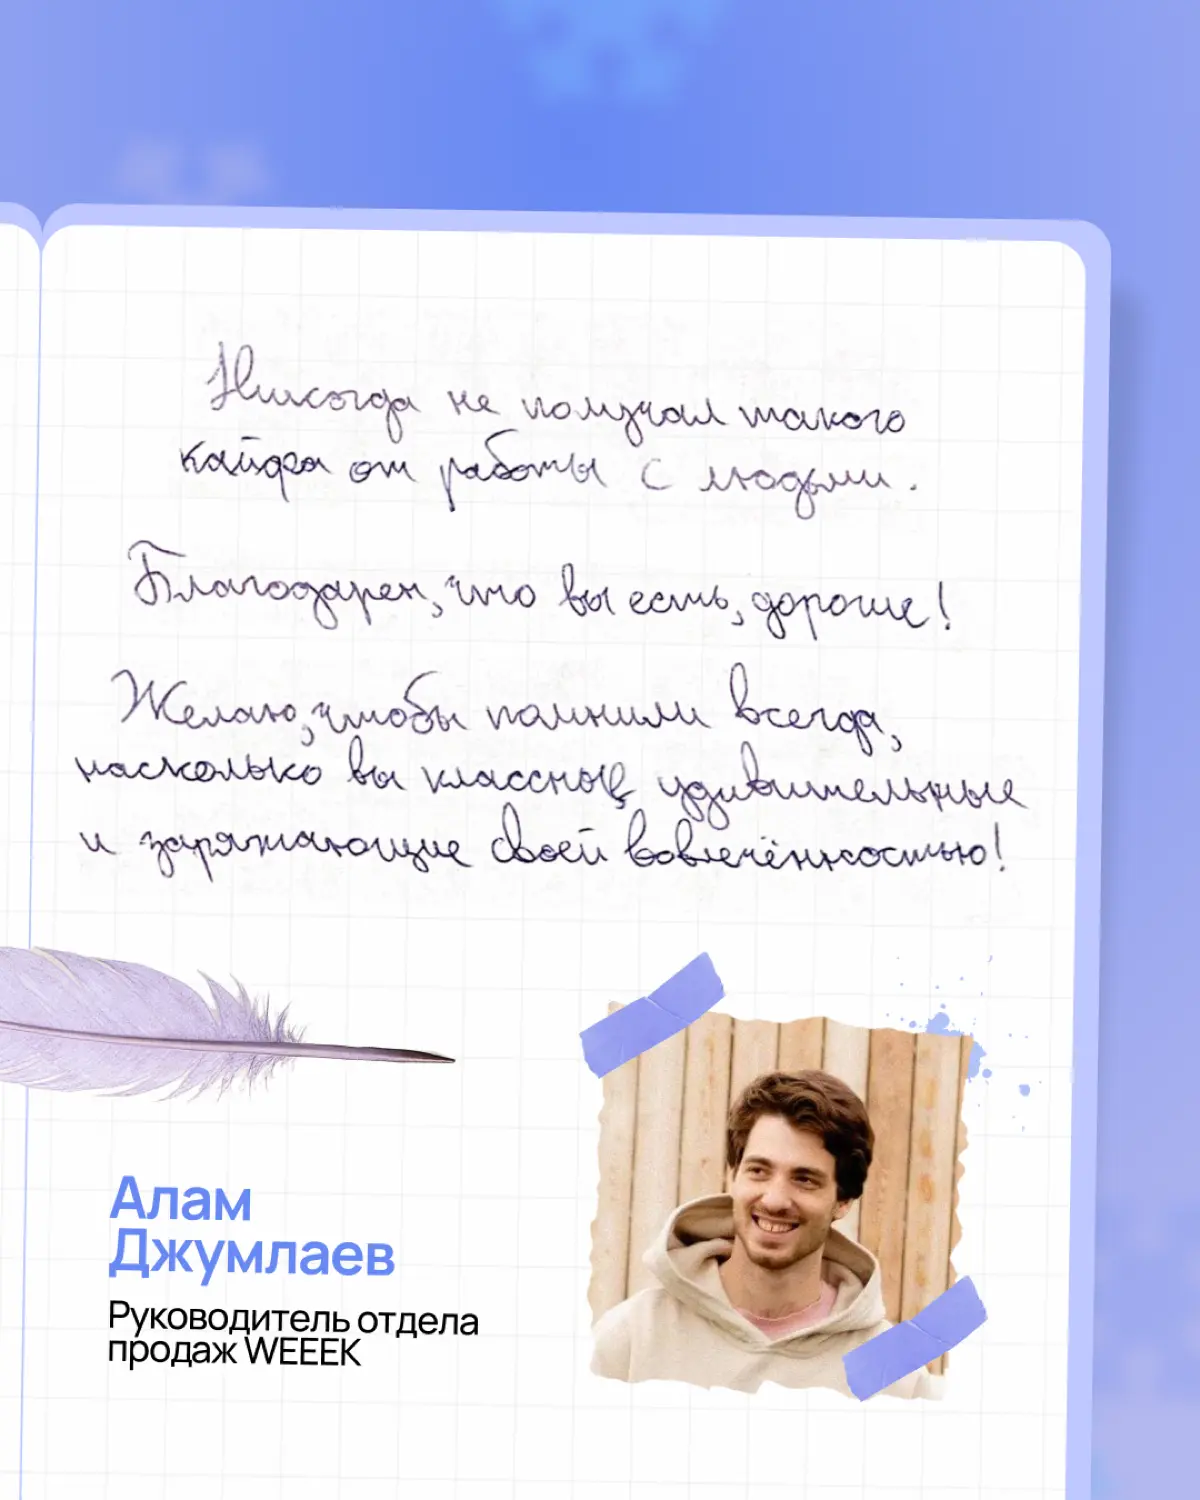 Никогда не получал такого
кайфа от работы с людьми.
Благодарен, что вы есть, дорогие!
Желаю, чтобы помнили всегда,
насколько вы классные, удивительные
и заряжающие своей вовлечённостью!
Алам
Джумлаев
Руководитель отдела
продаж WEEEK